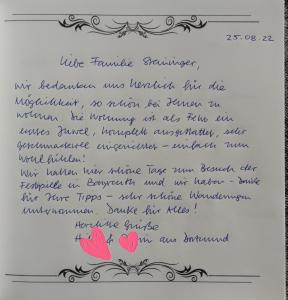 25.08.22
Liebe Familie
wir bedanken uns herzlich für die
Möglichkeit, so schön bei Ihnen zu
wohnen. Die Wohnung ist als FeWo ein
echtes Juwel, komplett ausgestattet, sehr
geschmackvoll eingerichtet - einfach zum
Wohlfühlen!
Wir hatten hier schöne Tage zum Besuch der
Festspiele in Bayreuth und wir haben - Danke
für Ihre Tipps - sehr schöne Wanderungen
unternommen. Danke für Alles!
Herzliche Grüße
aus Dortmund